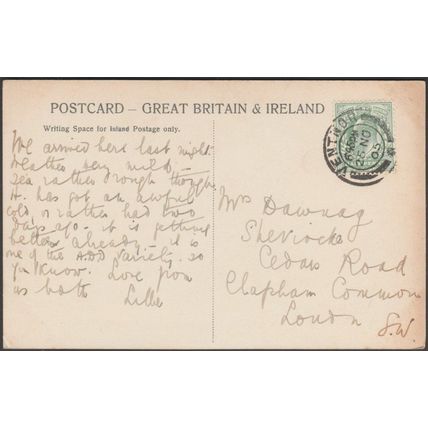 POSTCARD – GREAT BRITAIN & IRELAND
Writing Space for Inland Postage only.
We arrived here last night
weather very mild –
sea rather rough though
H. has got an awful
cold or rather had two
days ago – it is getting
better already – it is
one of the A.D.D variety so
you know. Love from
us both
Lillie
VENTNOR
NO
05
Mrs Dawnay
Cedars Road
Clapham Common
London
S.W.